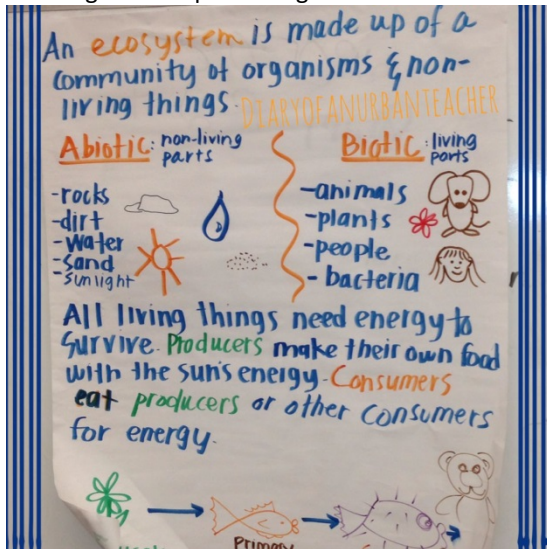 An ecosystem is made up of a
community of organisms & non-
living things.
DIARYOFANURBANTEACHER
Abiotic: non-living
parts
-rocks
-dirt
-Water
-Sand
-Sunlight
Biotic: living
parts
-animals
-plants
-people
-bacteria
All living things need energy to
Survive. Producers make their own food
with the sun's energy. Consumers
eat producers or other consumers
for energy.
Primary